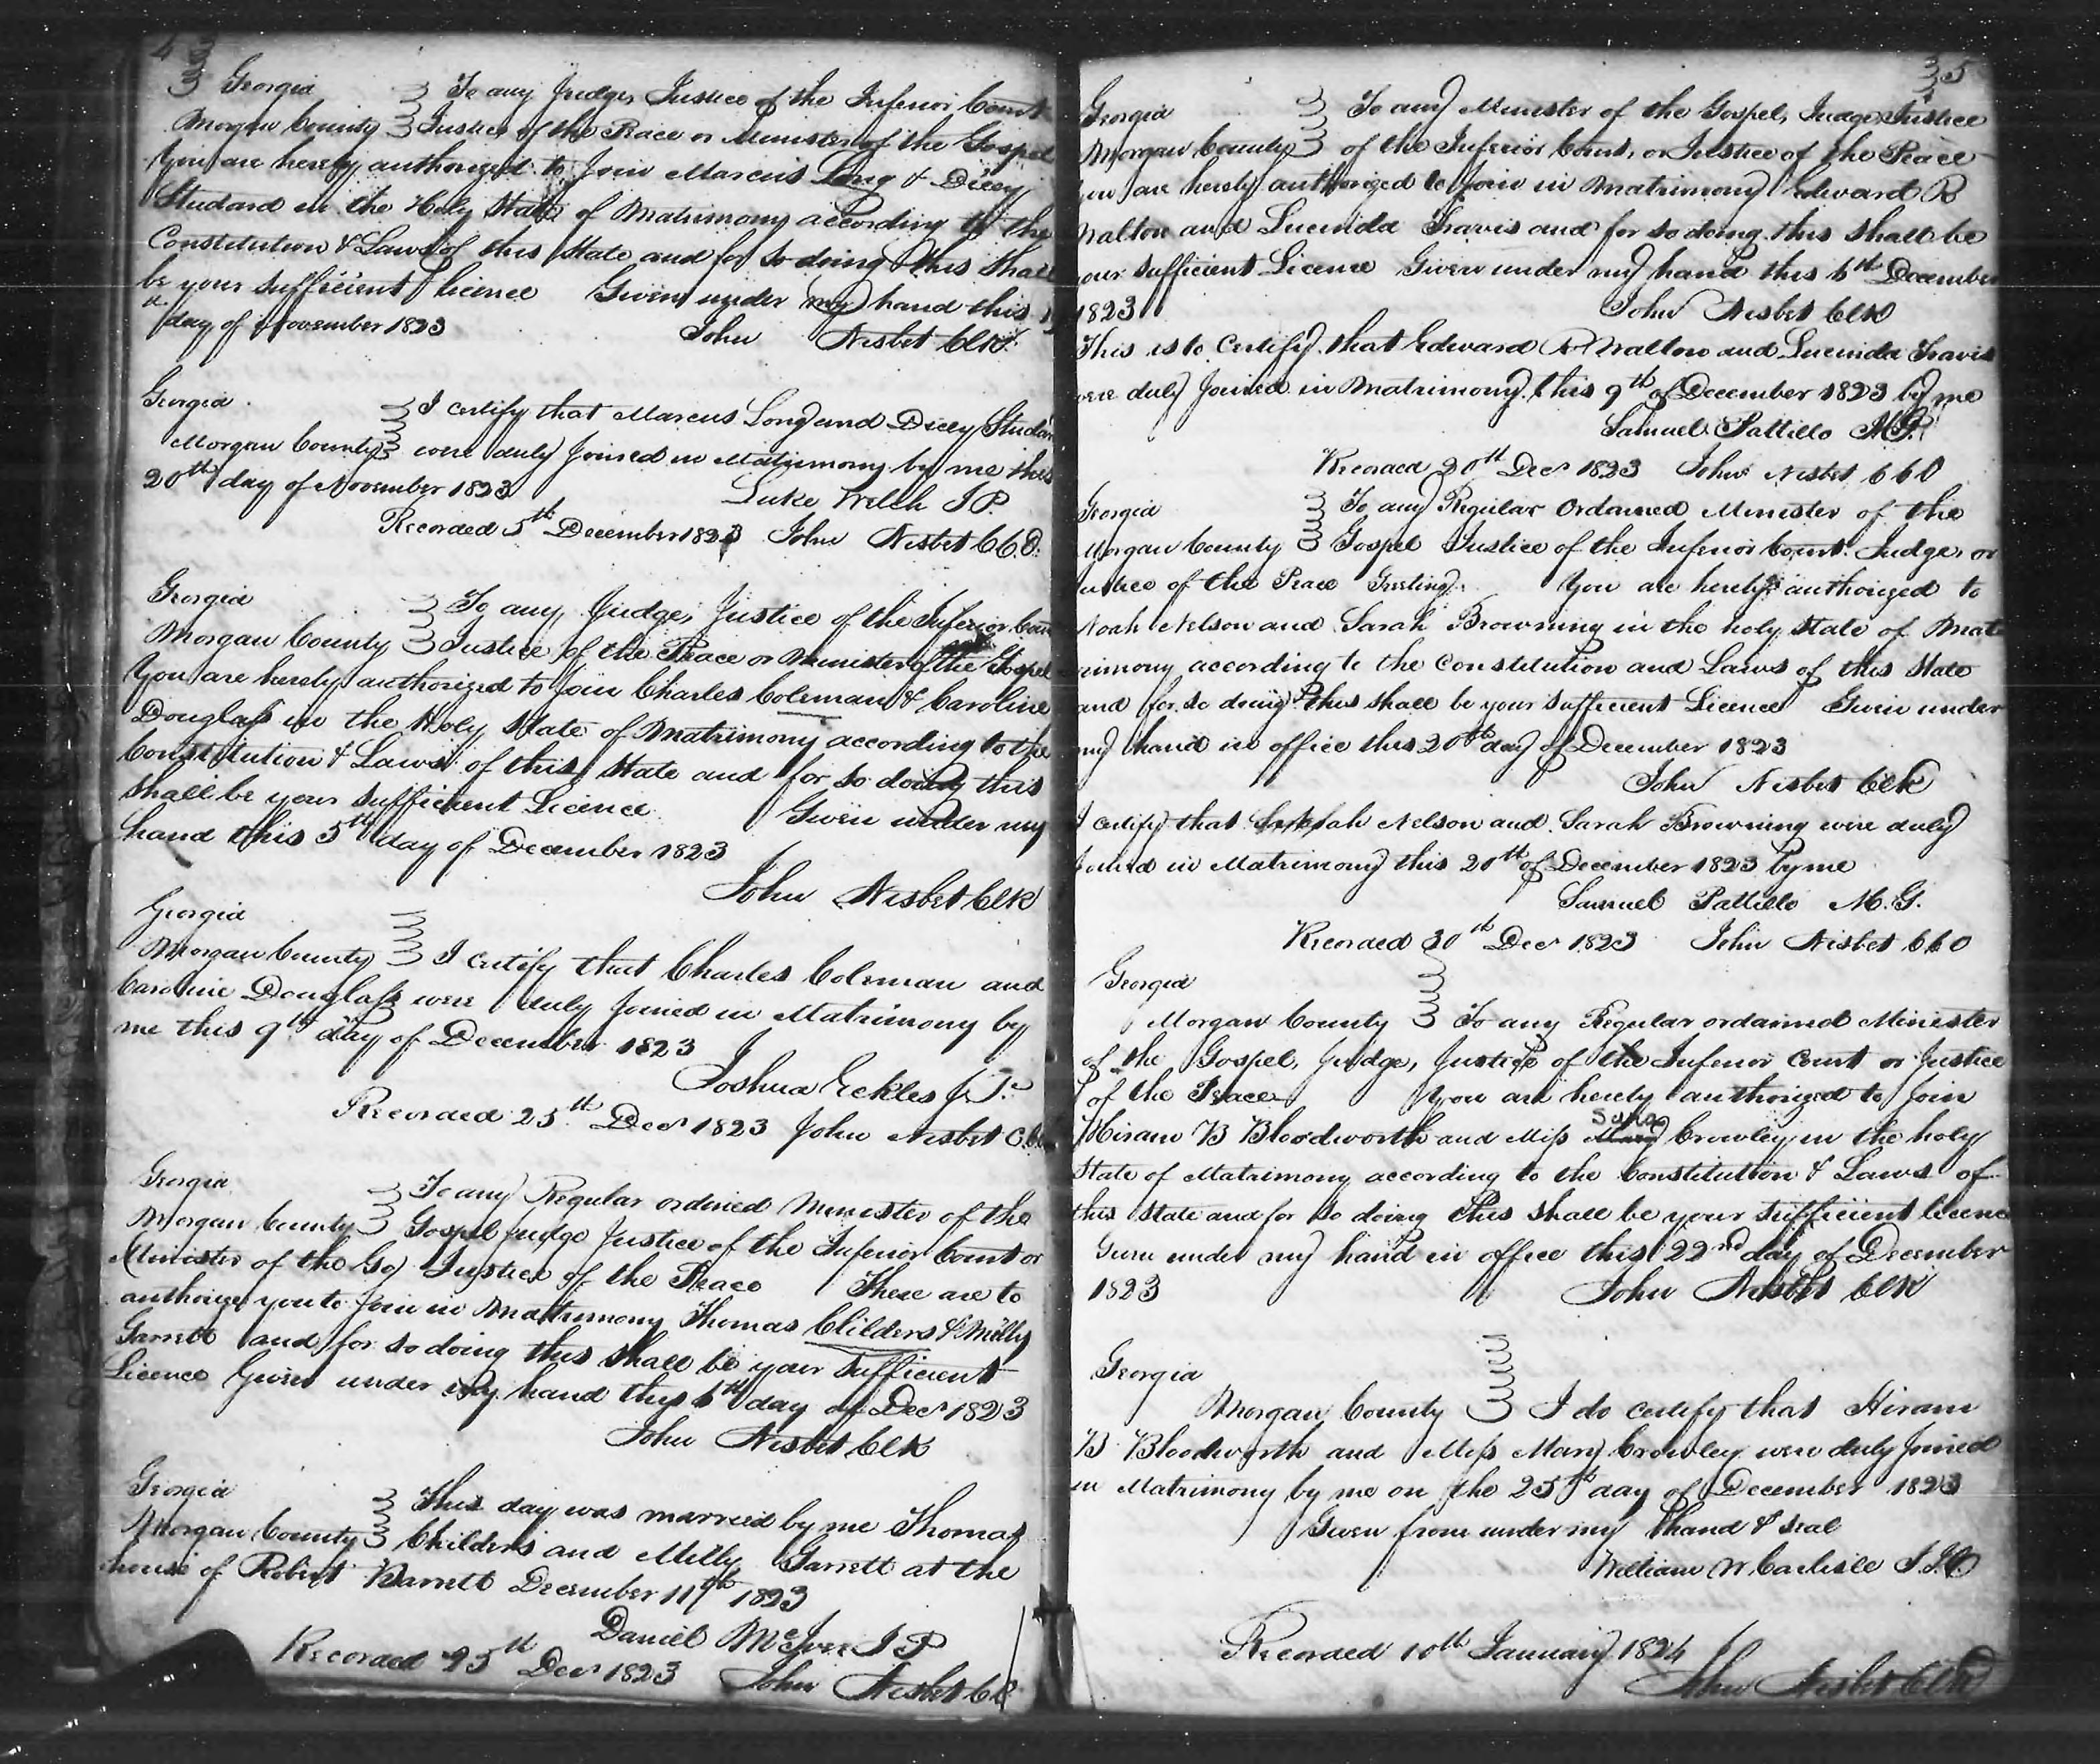 4
Georgia To any Judge, Justice of the Inferior Court
Morgan County Justice of the Peace or Minister of the Gospel
You are hereby authorized to Join Marcus Long & Dicey
Studard in the Holy State of Matrimony according to the
Constitution & Laws of this State and for so doing this shall
be your sufficient licence Given under my hand this
th day of November 1823 John Nesbet Clk
Georgia
I certify that Marcus Long and Dicey Studar
Morgan County were duly Joined in Matrimony by me this
20th day of November 1823
Luke Welch J P.
Recorded 5th December 1823 John Nesbet C C O.
Georgia To any Judge, Justice of the Inferior Cour
Morgan County Justice of the Peace or Minister of the Gospel
You are hereby authorized to Join Charles Coleman & Caroline
Douglass in the Holy State of Matrimony according to the
Constitution & Laws of this State and for so doing this
shall be your sufficient Licence Given under my
hand this 5th day of December 1823
John Nesbet Clk
Georgia
Morgan County I certify that Charles Coleman and
Caroline Douglass were duly Joined in Matrimony by
me this 9th day of December 1823
Joshua Eckles J. P.
Recorded 25th Decr 1823 John Nesbet C
Georgia To any Regular ordined Minister of the
Morgan County Gospel Judge Justice of the Inferior Court or
(Minister of the Go) Justice of the Peace These are to
authorize you to Join in Matrimony Thomas Clilders & Milly
Garrett and for so doing this shall be your sufficient
Licence Given under my hand this 6th day of Decr 1823
John Nesbet Clk
Georgia This day was married by me Thomas
Morgan County Childers and Milly Garrett at the
house of Robert Barrett December 11th 1823
Daniel McIver J P
Recorded 25th Decr 1823 John Nesbet Cl
5
Georgia To any Minister of the Gospel, Judge, Justice
Morgan County of the Inferior Court, or Justice of the Peace
you are hereby authorized to Join in Matrimony Edward R
Walton and Lucinda Travis and for so doing this shall be
your sufficient Licence Given under my hand this 6th December
1823 John Nesbet Clk
This is to certify that Edward R Walton and Lucinda Travis
were duly Joined in Matrimony this 9th of December 1823 by me
Samuel Pattillo M.G.
Recorded 20th Decr 1823 John Nesbet C C O
Georgia To any Regular Ordained Minister of the
Morgan County Gospel Justice of the Inferior Court. Judge, or
ustice of the Peace Greeting. You are hereby authorized to
Noah Nelson and Sarah Browning in the holy state of Mat
rimony according to the Constitution and Laws of this State
and for so doing this shall be your sufficient Licence Given under
my hand in office this 20th day of December 1823
John Nesbet Clk
I certify that Nelson and Sarah Browning were duly
Joined in Matrimony this 20th of December 1823 by me
Samuel Pattillo M. G.
Recorded 30th Decr 1823 John Nesbet C C O
Georgia
Morgan County To any Regular ordained Minister
of the Gospel, Judge, Justice of the Inferior Court or Justice
of the Peace You are hereby authorized to Join
Hiram B Bloodworth and Miss Mary Crowley in the holy
State of Matrimony according to the Constitution & Laws of
this State and for so doing this shall be your sufficient licence
Given under my hand in office this 22nd day of December
1823 John Nesbet Clk
Georgia
Morgan County I do certify that Hiram
B Bloodworth and Miss Mary Crowley were duly Joined
in Matrimony by me on the 25th day of December 1823
Given from under my hand & seal
William W Carlisle J.P.
Recorded 10th January 1824
John Nesbet Clk